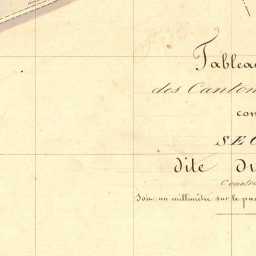 Tablea
des Canton
con
SEC
dite du
Constr
Soit un millimètre sur le pa